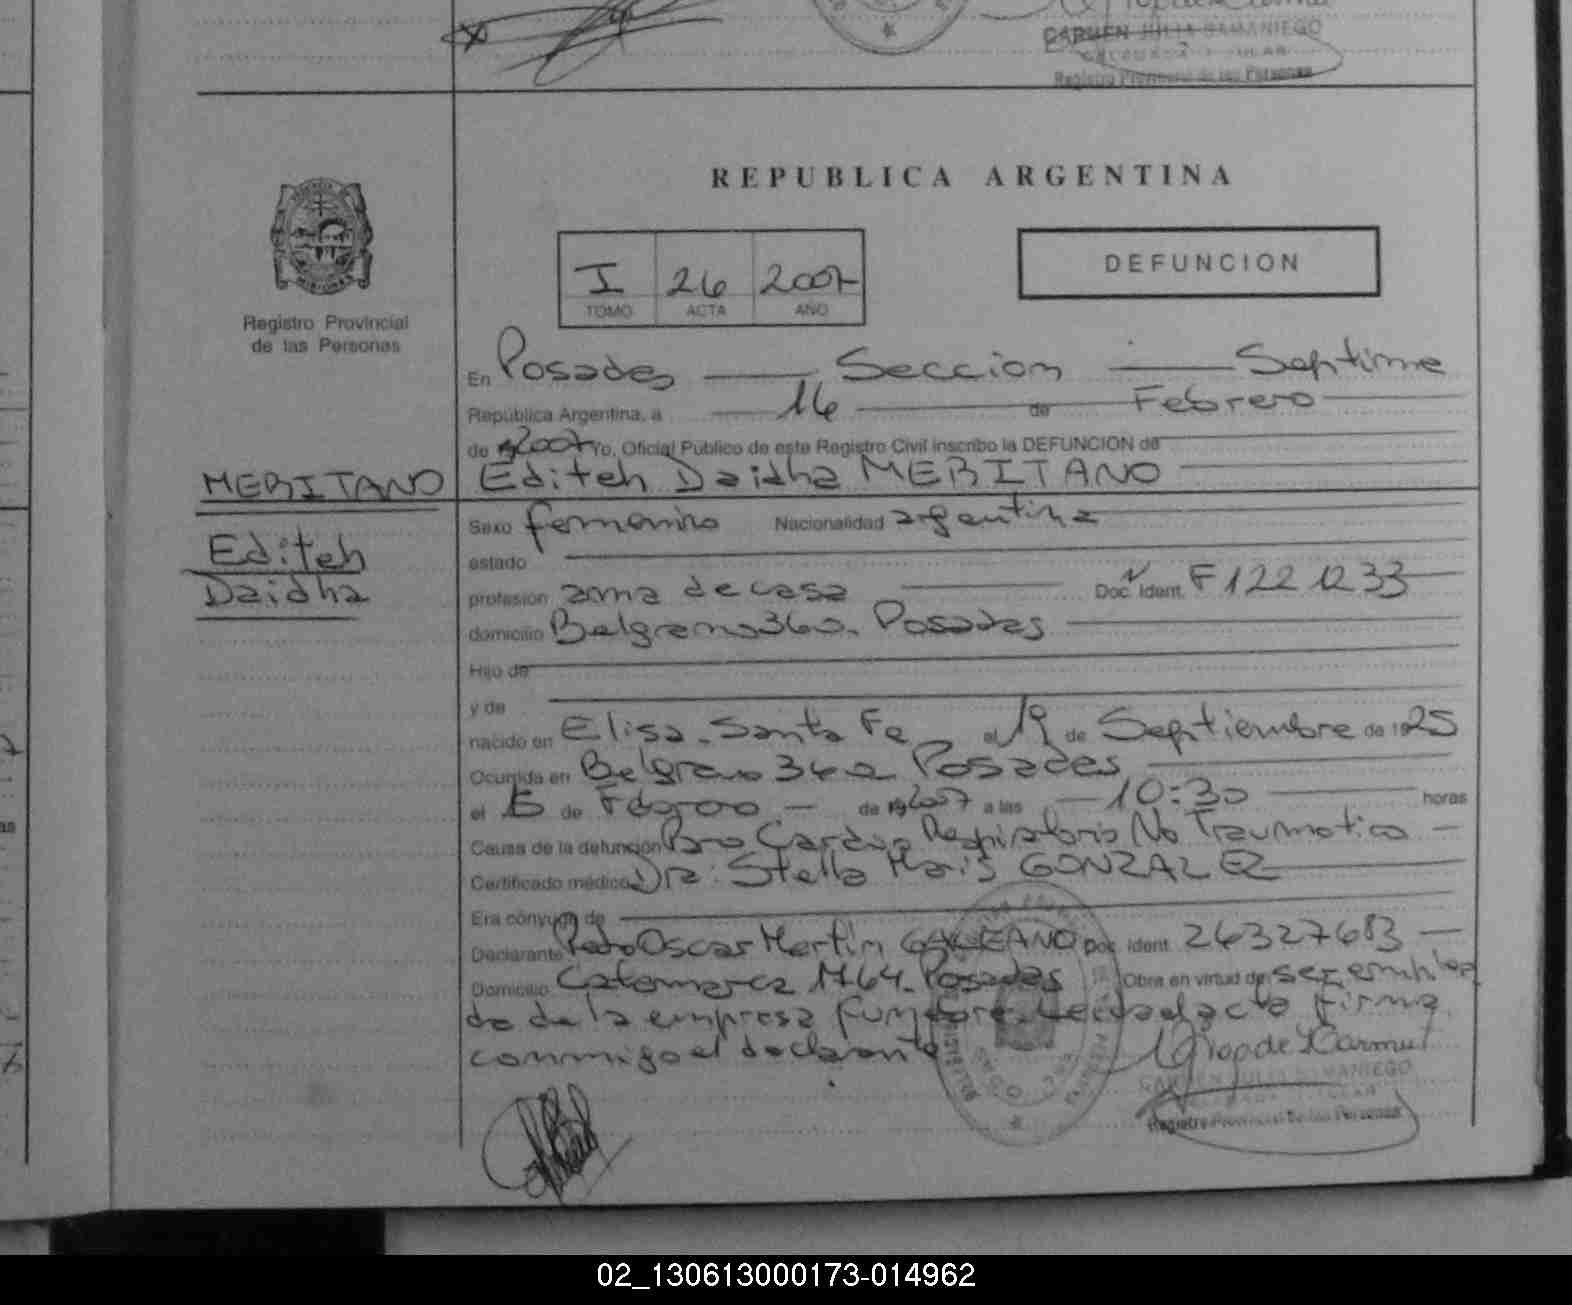 CARMEN JULIA SAMANIEGO
Registro Provincial de las Personas
REPUBLICA ARGENTINA
I 26 2007
TOMO ACTA AÑO
DEFUNCION
Registro Provincial
de las Personas
En Posadas Seccion Septima
República Argentina, a 16 de Febrero
de 2007 Yo, Oficial Público de este Registro Civil inscribo la DEFUNCION de
MERITANO Editeh Daidha MERITANO
Editeh
Daidha
Sexo femenino Nacionalidad argentina
estado
profesión ama de casa Doc. Ident. F 1221233
domicilio Belgrano 360. Posadas
Hijo de
y de
nacido en Elisa. Santa Fe el 19 de Septiembre de 1925
Ocurrida en Belgrano 360 Posadas
el de Febrero de 2007 a las 10:30 horas
Causa de la defunción Paro Cardio Respiratorio No Traumatico
Certificado médico Dra. Stella Maris GONZALEZ
Era cónyuge de
Declarante Pedro Oscar Martin GALEANO Doc. Ident. 26327683
Domicilio Catamarca 1764. Posadas Obra en virtud de ser emplea
do de la empresa funebre. Leida el acta firma
conmigo el declarante
CARMEN JULIA SAMANIEGO
Registro Provincial de las Personas
02_130613000173-014962